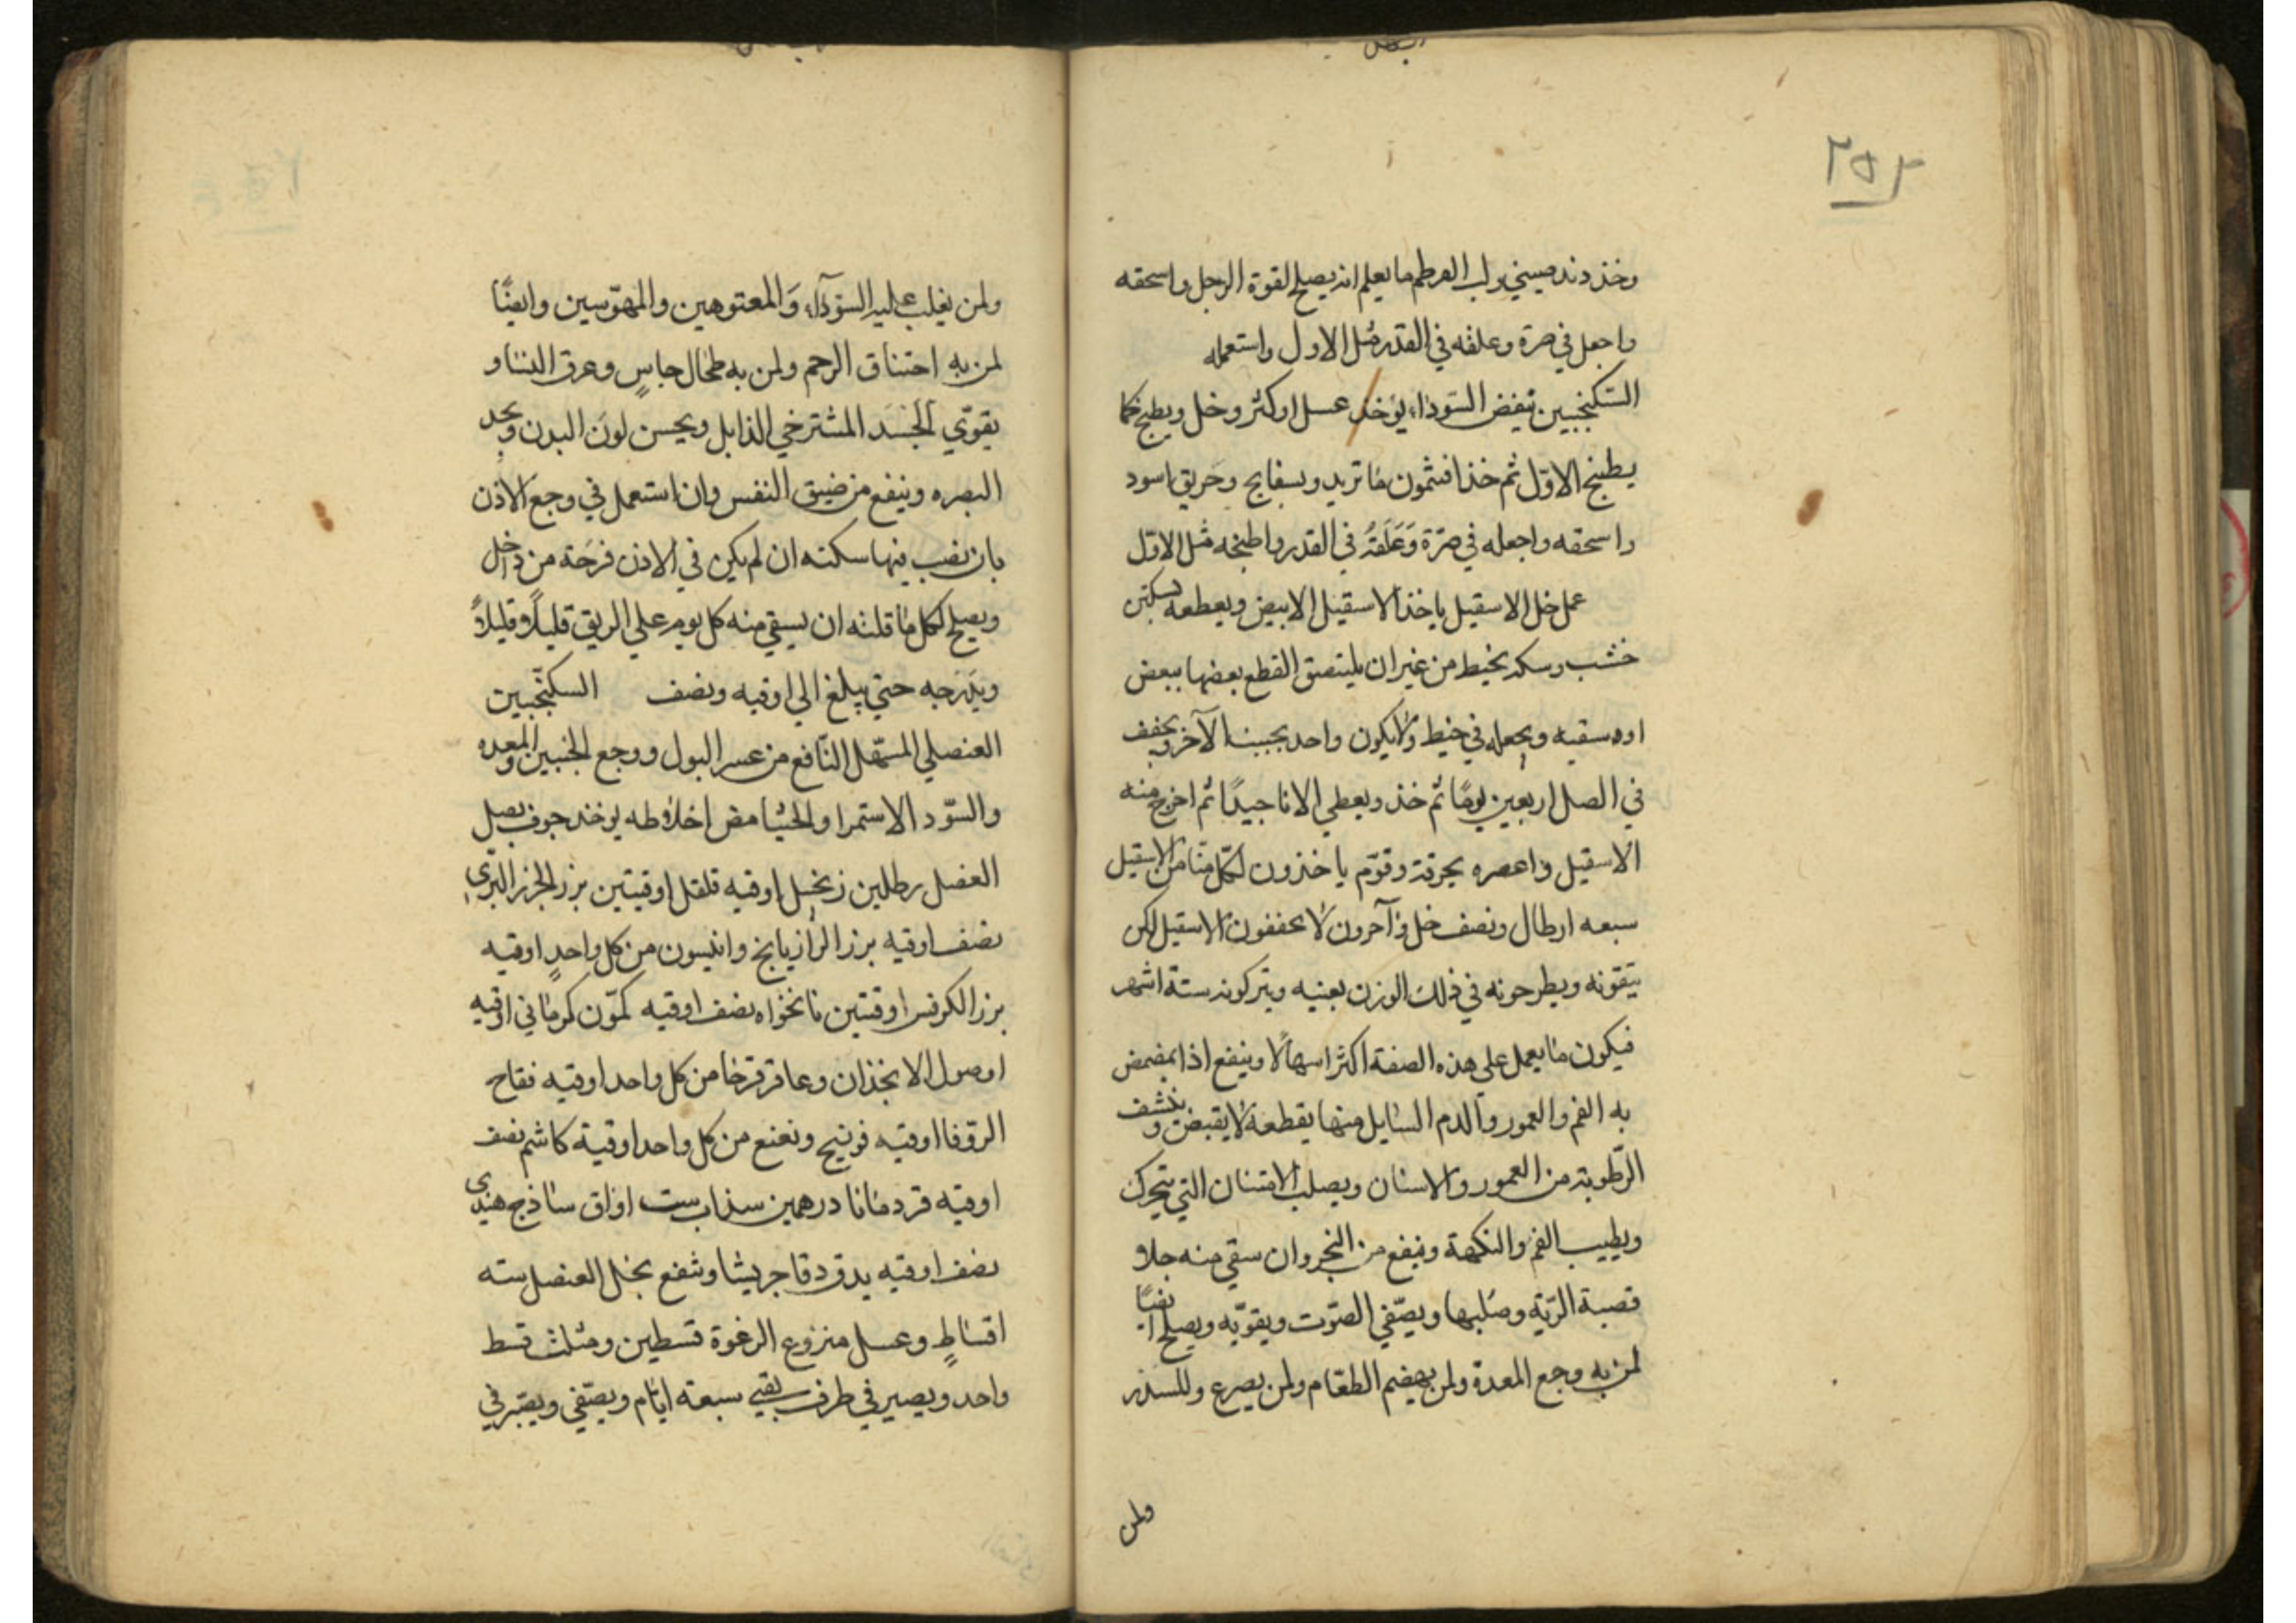 ٢٥٢
وخذ دند صيني ولب القرطم ما يعلم انه يصلح لقوة الرجل واسحقه
واجعل في صرة وعلقه في القدر مثل الاول واستعمله
السكنجبين ينفض السودا، يؤخذ عسل اوكثر وخل ويطبخ كما
يطبخ الاوّل ثم خذ افثمون ما تريد وبسفايج وخربق اسود
واسحقه واجعله في صرّة وَعَلقهُ في القدر واطبخه مثل الاوّل
عمل خل الاسقيل ياخذ الاسقيل الابيض ويقطعه بسكين
خشب وسكه بخيط من غير ان يلتصق القطع بعضها ببعض
وبجعله في خيط ولا يكون واحد بجنب الآخر ويجفف
في الصل اربعين يومًا ثم خذ ويغطي الانا جيدًا ثم اخرج منه
الاسقيل واعصره بخرقة وقوّم ياخذون لكّل منّا من الاسقيل
سبعه ارطال ونصف خل وآخرون لا يجففون الاسقيل لكن
ينقونه ويطرحونه في ذلك الوزن بعينه ويتركونه ستة اشهر
فيكون ما يعمل على هذه الصفة اكثر اسهالًا وينفع اذا تمضمض
به الفم والعمور والدم السايل منها يقطعه لا يقبض وينشف
الرّطوبة من العمور والاسنان ويصلب الاسنان التي يتحرك
ويطيب الفم والنكهة وينفع من البخر وان سقي منه جلا
قصبة الرّية وصلبها ويصّفي الصّوت ويقوّيه ويصلح ايضًا
لمن به وجع المعدة ولمن يهضم الطعام ولمن يصرع وللسدر
ولمن
ولمن يغلب عليه السّودآء وَالمعتوهين والمهوّسين وايضًا
لمن به اختناق الرحم ولمن به طحال جاسٍ وعرق النسا و
يقوّي الجَسَد المسترخي الذابل ويحسن لون البدن ويحد
البصره وينفع من ضيق النفس وان استعمل في وجع الاذن
بان نصب فيها سكنه ان لم يكن في الاذن قرحَة من داخل
ويصلح لكل ما قلته ان يسقي منه كل يوم على الريق قليلًا قليلًا
ويَدَرجه حتي يبلغ الي اوقيه ونصف السكنجّبين
العنصلي المسّهل النّافع من عسر البول ووجع الجنبين والمعده
والسّود الاستمرا والجشا مض اخلاطه يوخذ جوف بصل
العضل رطلين زنجبيل اوقيه فلفل اوقيتين بزر الجزر البّري
نصف اوقيه بزر الرازيانج وانيسون من كل واحدٍ اوقيه
بزر الكرفس اوقتين نانخواه نصف اوقيه كمّون كرماني اوقيه
اوصول الانجذان وعاقر قرحا من كل واحد اوقيه فقاح
الزوفا اوقيه فوتنج ونعنع من كل واحد اوقية كاشم نصف
اوقيه قردمانا درهمين سذاب ست اواق ساذج هندى
نصف اوقيه يدق دقا جريشا وينقع بخل العنصل سته
اقساطٍ وعسل منزوع الرغوة قسطين ومثلث قسط
واحد ويصير في ظرف بقي سبعة ايّام ويصّفي ويصّير في